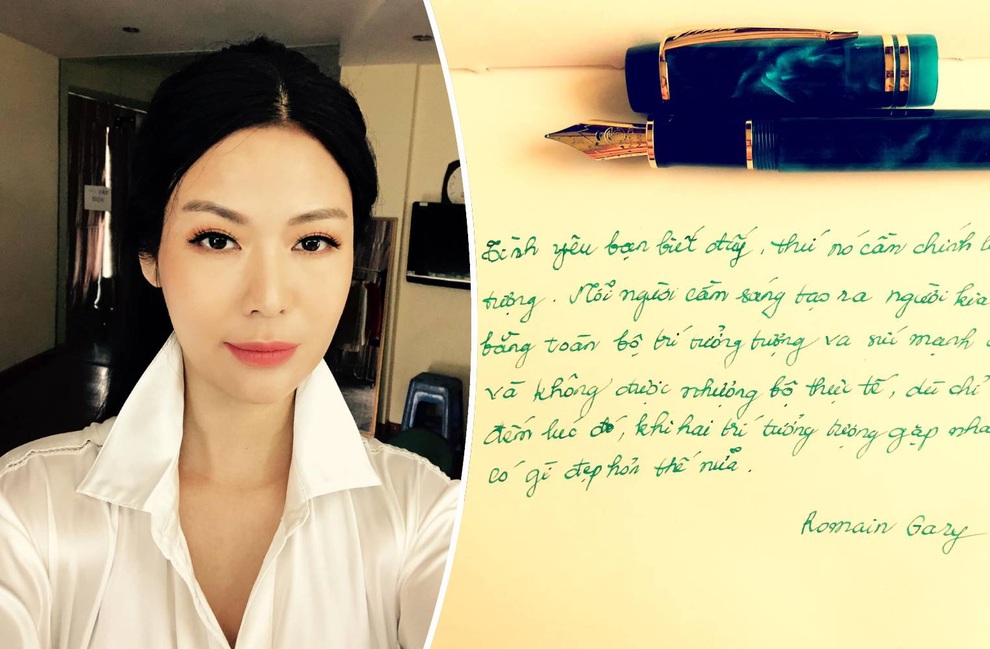 Tình yêu bạn biết đấy, thứ nó cần chính l
tượng. Mỗi người cần sáng tạo ra người kia
bằng toàn bộ trí tưởng tượng và sức mạnh
và không được nhượng bộ thực tế, dù chỉ
đếm lúc đó, khi hai trí tưởng tượng gặp nha
có gì đẹp hơn thế nữa.
Romain Gary